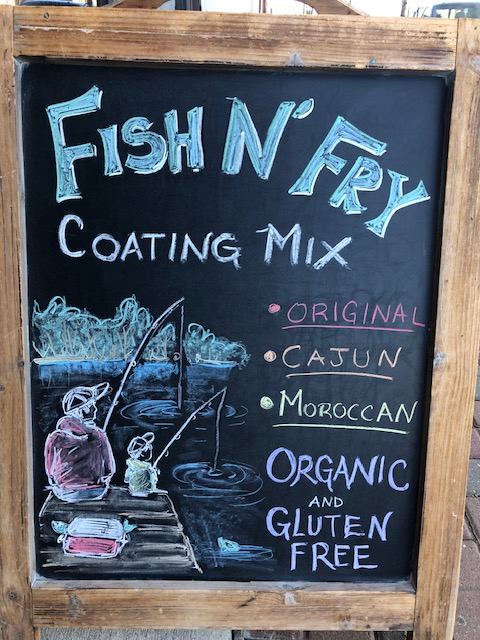 FISH N' FRY
COATING MIX
• ORIGINAL
• CAJUN
• MOROCCAN
ORGANIC
AND
GLUTEN
FREE